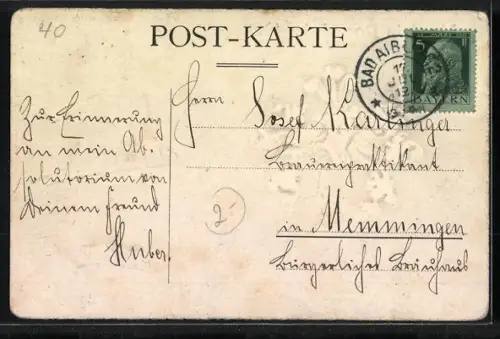 40
POST-KARTE
BAD AIB
BAYERN
5
Zur Erinnerung
an mein Ab-
solutorium von
Deinem Freund
Huber
Herrn
Josef
Brauereipraktikant
in Memmingen
Bürgerliches Bräuhaus
2-